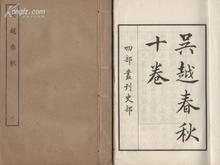 吳越春秋
十卷
四部叢刊史部
越春秋